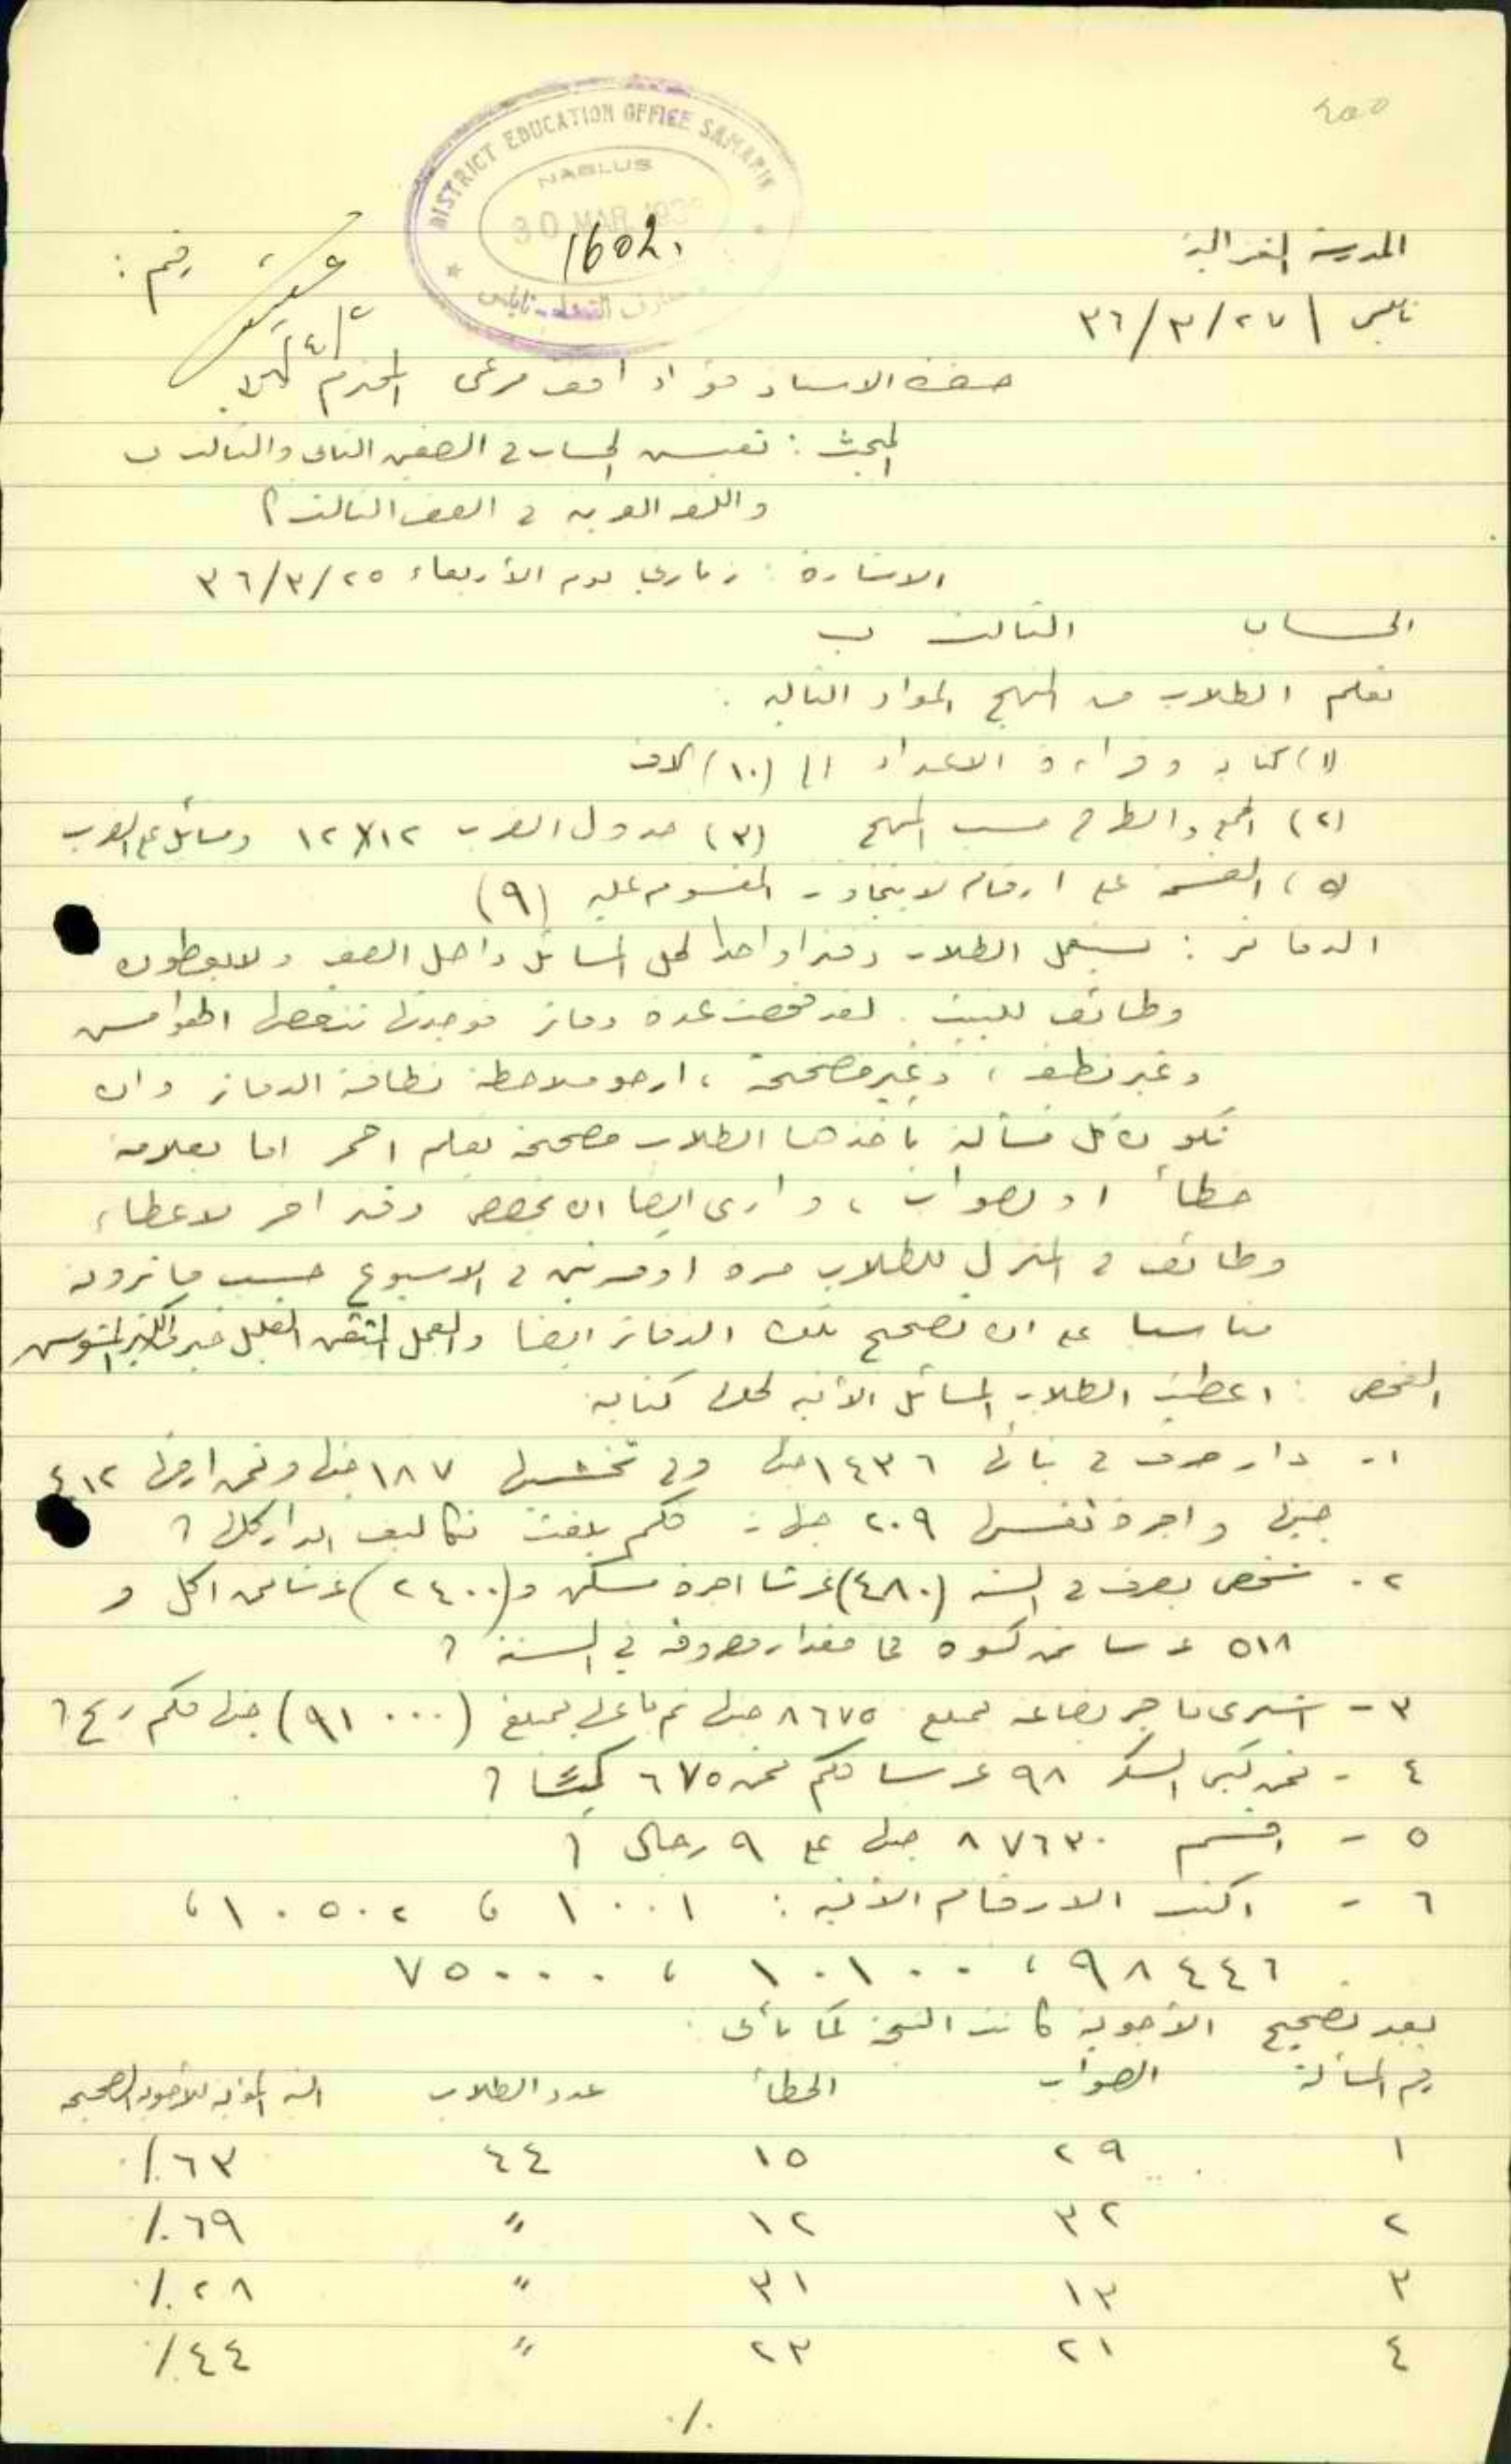 ٤٥٥
DISTRICT EDUCATION OFFICE SAMARIA
NABLUS
30 MAR 193
1602.
المدرسة الغزالية
رقم :
نابلس / ٢٧/٣/٣٦
٢/٤
حضرة الاستاذ فؤاد افندي مرعي المحترم
المبحث : تفتيش الحساب في الصفين الثاني والثالث ب
واللغة العربية في الصف الثالث أ
الاشارة : زيارتي يوم الأربعاء ٢٥/٣/٣٦
الحساب الثالث ب
تعلم الطلاب من المنهج المواد التالية :
(١) كتابة وقراءة الاعداد الى (١٠) الاف
(٢) الجمع والطرح حسب المنهج (٣) جدول الضرب ١٢×١٢ ومسائل على الضرب
(٥) القسمة على ارقام لا يتجاوز المقسوم عليه (٩)
الدفاتر : يستعمل الطلاب دفترا واحدا لحل المسائل داخل الصف ولا يعطون
وظائف للبيت . لقد فحصت عدة دفاتر فوجدتها تنقصها الهوامش
وغير نظيفة ، وغير مصححة ، ارجو ملاحظة نظافة الدفاتر وان
تكون كل مسألة يأخذها الطلاب مصححة بقلم احمر اما بعلامة
خطأ او بصواب ، وارى ايضا ان يخصص دفتر اخر لاعطاء
وظائف في المنزل للطلاب مرة او مرتين في الاسبوع حسب ما ترونه
مناسبا على ان تصحح تلك الدفاتر ايضا والعمل المتقن القليل خير من الكثير المشوش
الفحص : اعطيت الطلاب المسائل الآتية لحلها كتابة
١- دار صرف في بنائها ١٤٣٦ جنيها وفي تخشيبها ١٨٧ جنيها وثمن ارضها ٤١٢
جنيها واجرة ٢٠٩ جنيهات فكم بلغت تكاليف الدار كلها ؟
٢- شخص يصرف في السنة (٤٨٠) غرشا اجرة مسكن و(٢٤٠٠) غرشا ثمن اكل و
٥١٨ غرشا ثمن كسوة فما مقدار مصروفه في السنة ؟
٣- اشترى تاجر بضاعة بمبلغ ٨٦٧٥ جنيها ثم باعها بمبلغ (٩١٠٠٠) جنيها فكم ربح ؟
٤- ثمن كيس السكر ٩٨ غرشا فكم ثمن ٦٧٥ كيسًا ؟
٥- اقسم ٨٧٦٣٠ جنيها على ٩ رجال ؟
٦- اكتب الارقام الآتية : ١٠٠١ ، ١٠٥٠٢ ،
٩٨٤٤٦ ، ١٠١٠٠ ، ٧٥٠٠٠
بعد تصحيح الأجوبة كانت النتيجة كما يأتي :
رقم المسألة الصواب الخطأ عدد الطلاب النسبة المئوية للأجوبة الصحيحة
١ ٢٩ ١٥ ٤٤ ٦٣٪
٢ ٣٢ ١٢ " ٦٩٪
٣ ١٣ ٣١ " ٢٨٪
٤ ٢١ ٢٣ " ٤٤٪
./.